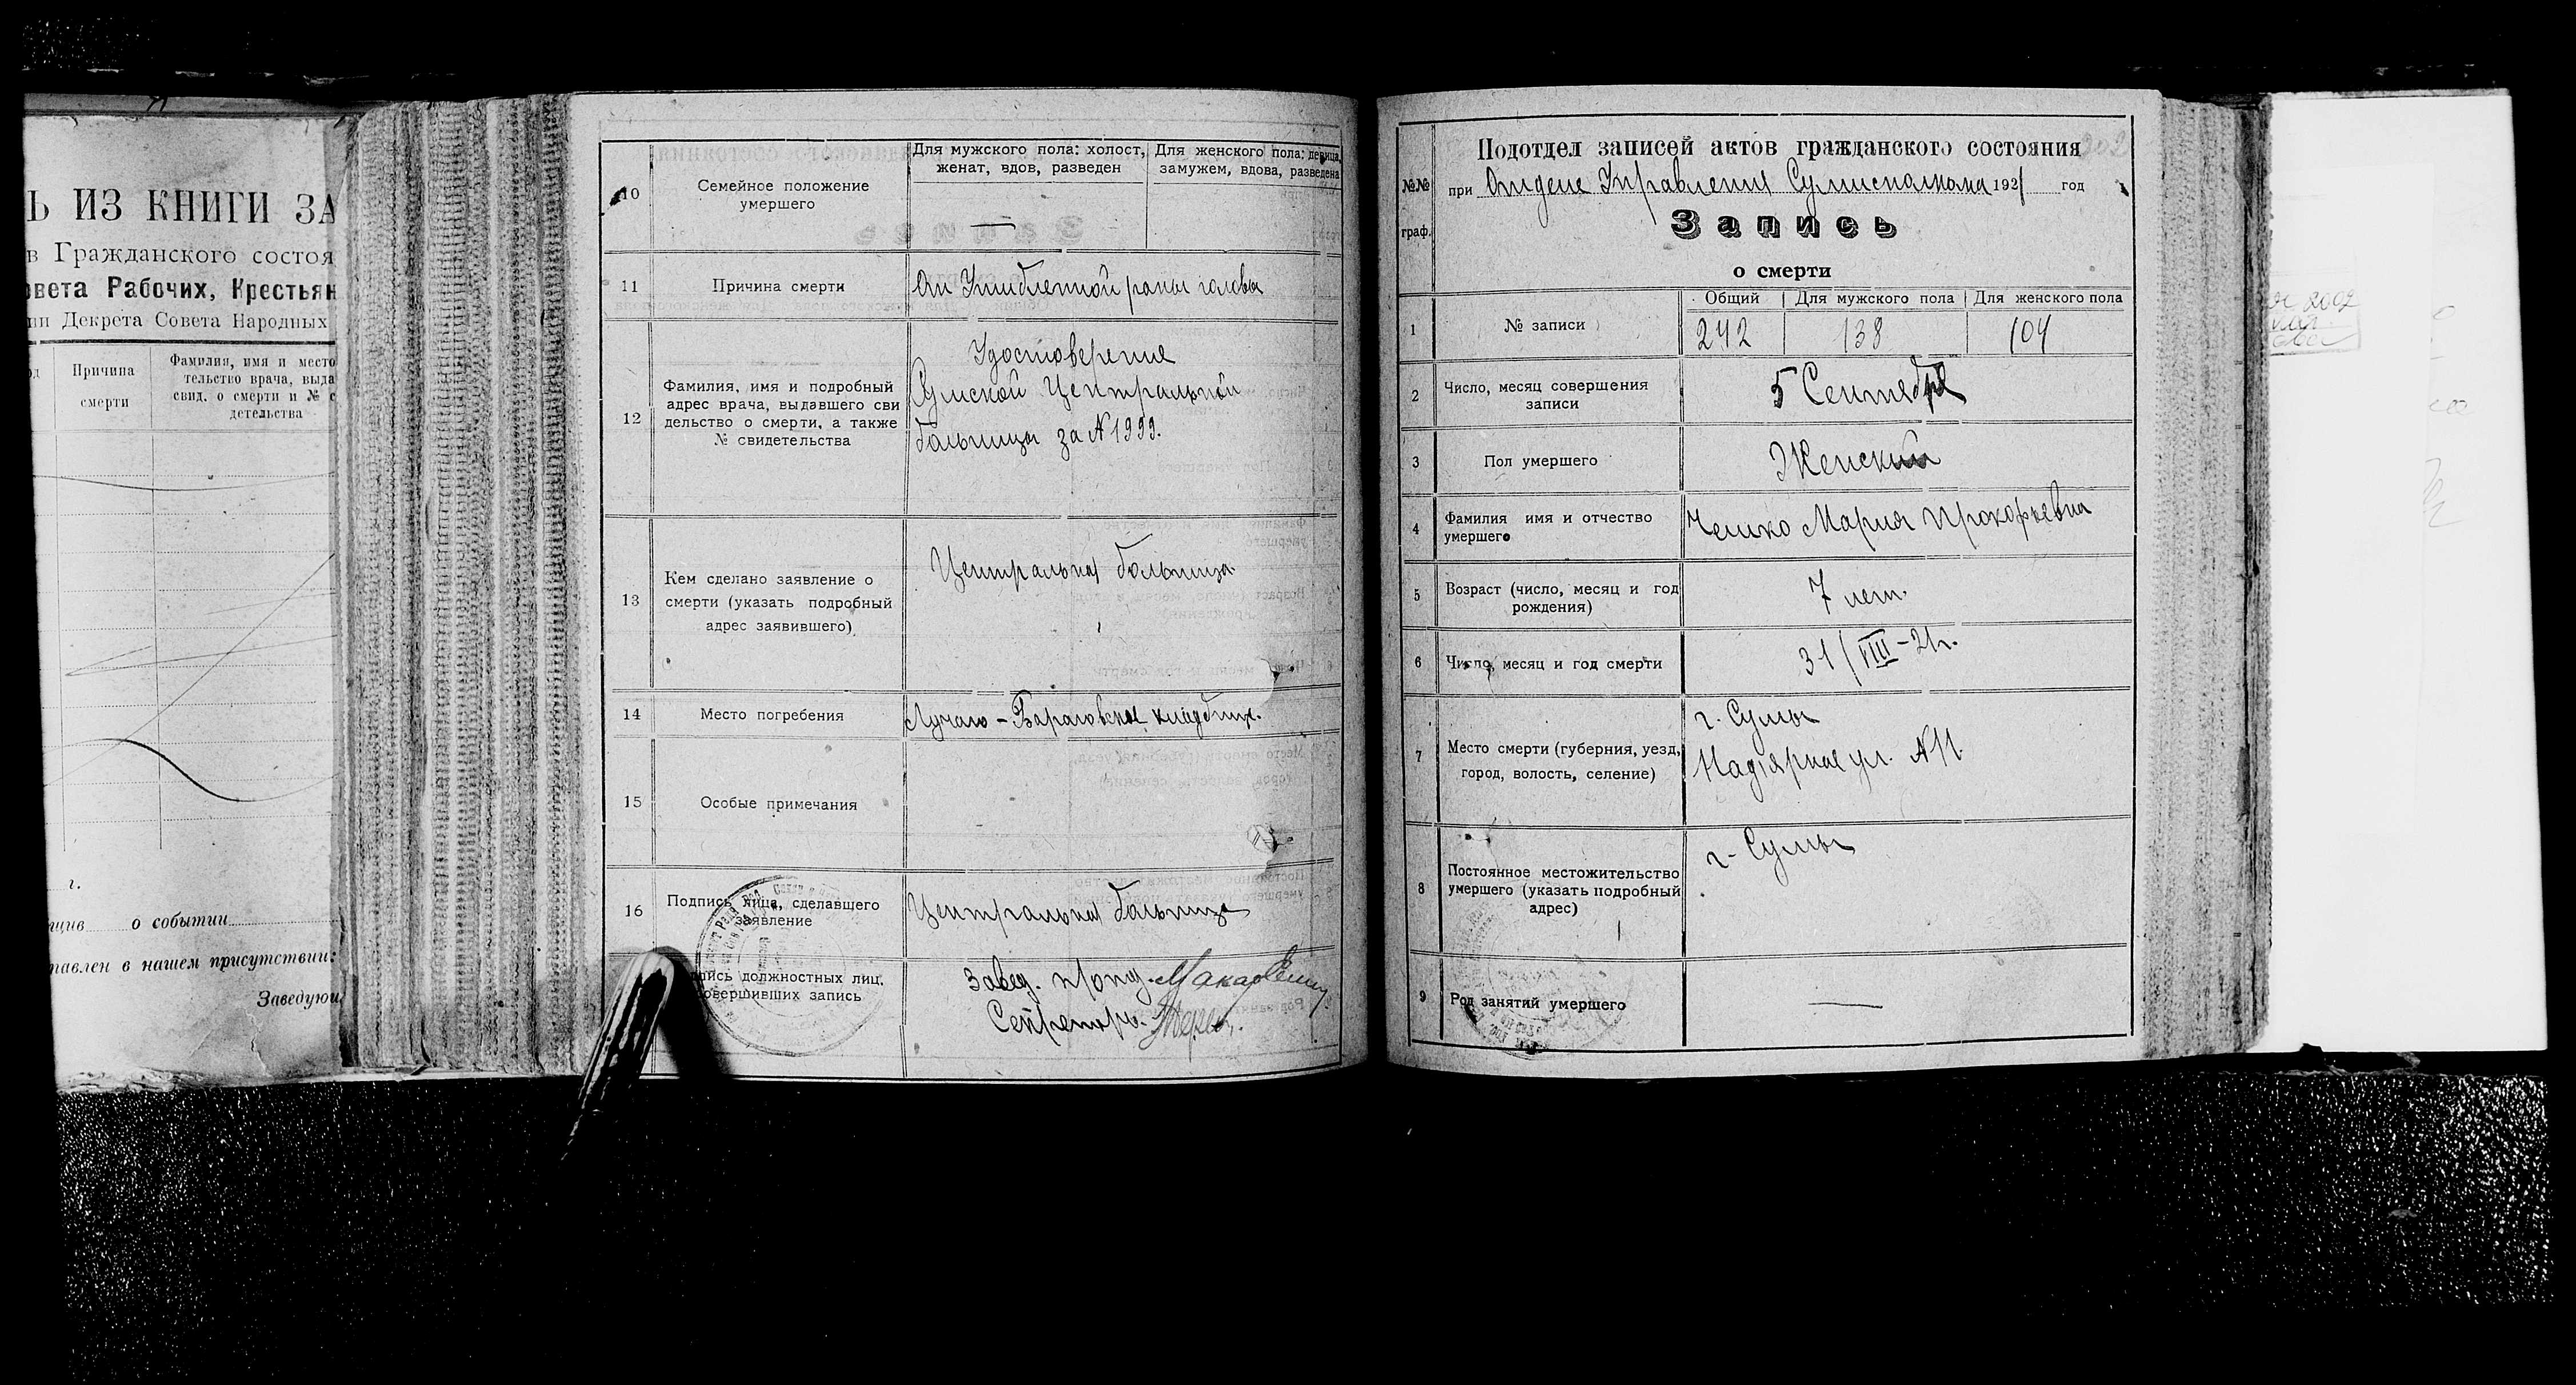 Ь ИЗ КНИГИ ЗА
в Гражданского состоя
овета Рабочих, Крестьян
ии Декрета Совета Народных
Причина
смерти
Фамилия, имя и место
тельство врача, выда
свид. о смерти и № с
детельства
г.
о событии
тавлен в нашем присутствии:
Заведую
10
Семейное положение
умершего
Для мужского пола: холост,
женат, вдов, разведен
Для женского пола: девица,
замужем, вдова, разведена
—
11
Причина смерти
От Ушибленной раны головы
12
Фамилия, имя и подробный
адрес врача, выдавшего сви
дельство о смерти, а также
№ свидетельства
Удостоверение
Сумской Центральной
больницы за № 1999.
13
Кем сделано заявление о
смерти (указать подробный
адрес заявившего)
Центральная больница
14
Место погребения
кладбище.
15
Особые примечания
16
Подпись лица, сделавшего
заявление
Центральная больница
пись должностных лиц,
совершивших запись
Завед. п/отд.
Секретарь.
№№
граф.
Подотдел записей актов гражданского состояния
при Отделе Управления Сумисполкома 1921 год
Запись
о смерти
1
№ записи
Общий
Для мужского пола
Для женского пола
242
138
104
2
Число, месяц совершения
записи
5 Сентября
3
Пол умершего
Женский
4
Фамилия имя и отчество
умершего
Чешко Мария Прокофьевна
5
Возраст (число, месяц и год
рождения)
7 лет.
6
Число, месяц и год смерти
31/VIII-21г.
7
Место смерти (губерния, уезд,
город, волость, селение)
г. Сумы
ул. № 11.
8
Постоянное местожительство
умершего (указать подробный
адрес)
г. Сумы
9
Род занятий умершего
—